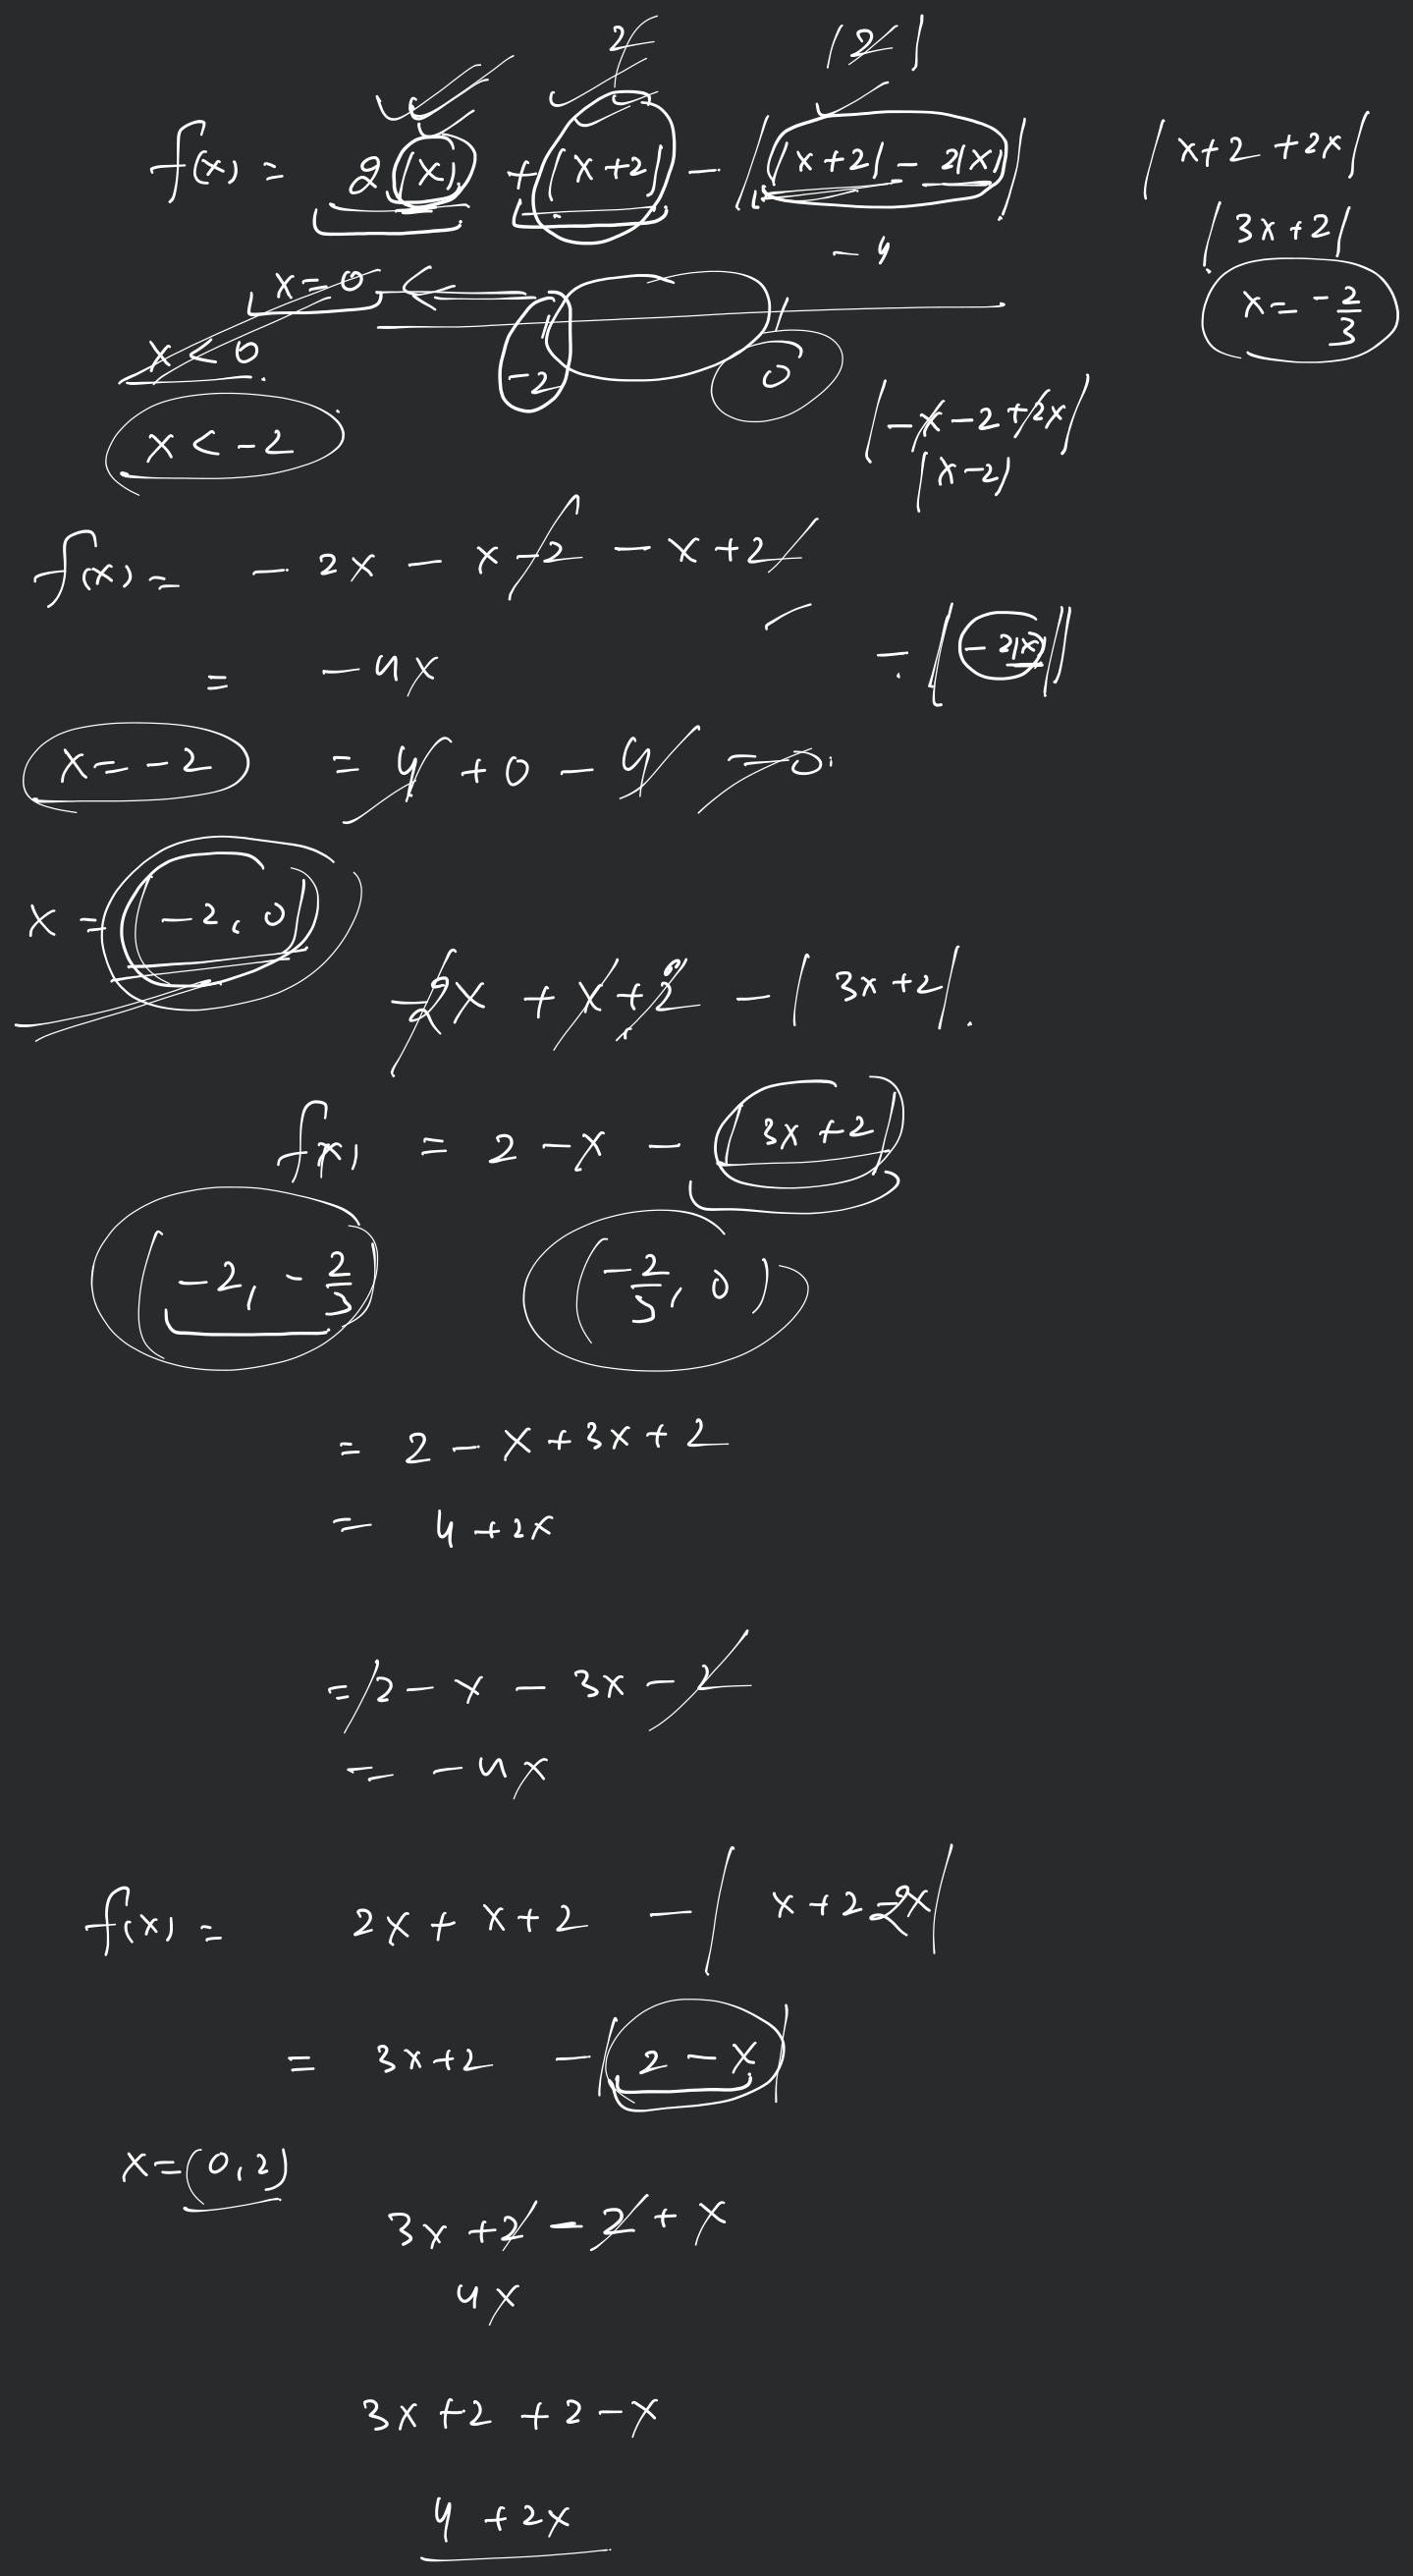 2 |2|
f(x) = 2|x| + |x+2| - ||x+2| - 2|x||
|x+2+2x|
|3x+2|
- 4
x = 0
x = -2/3
x < 0
-2 0
x < -2
|-x-2+2x|
|x-2|
f(x) = - 2x - x - 2 - x + 2
= - 4x
- |-2|x||
x = -2 = 4 + 0 - 4 = 0
x = (-2, 0)
-2x + x + 2 - |3x+2|.
f(x) = 2 - x - |3x+2|
(-2, -2/3) (-2/3, 0)
= 2 - x + 3x + 2
= 4 + 2x
= 2 - x - 3x - 2
= - 4x
f(x) = 2x + x+2 - |x+2-2x|
= 3x+2 - |2-x|
x = (0, 2)
3x + 2 - 2 + x
4x
3x + 2 + 2 - x
4 + 2x